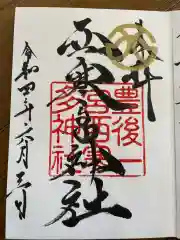 奉拝
豊後一
宮西寒
多神社
西寒多神社
令和四年六月三日